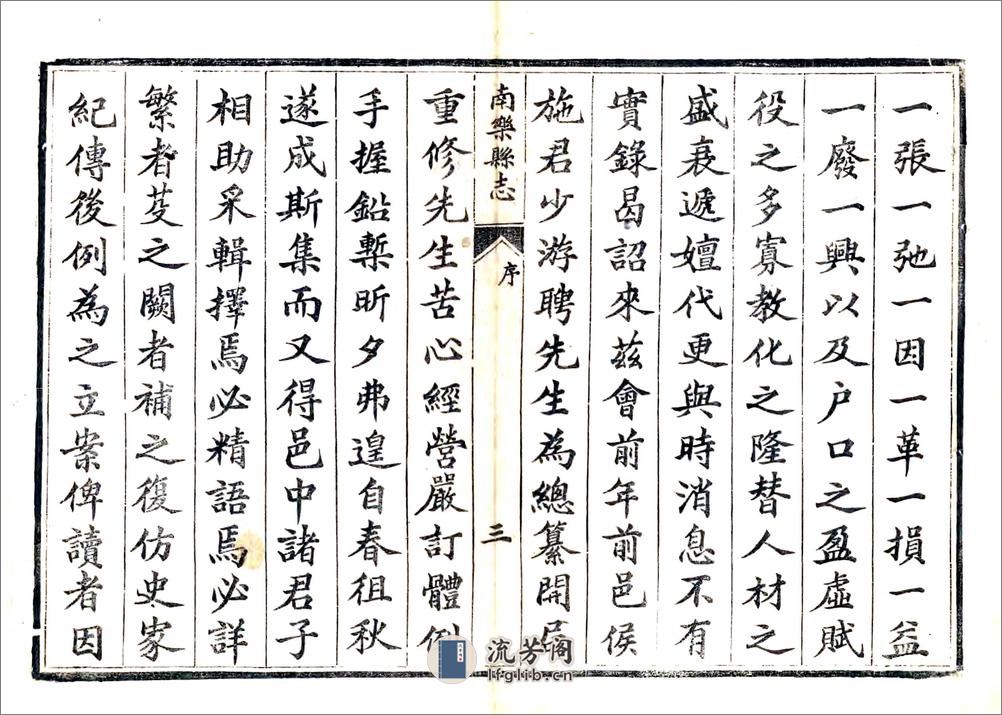 一張一弛一因一革一損一益
一廢一興以及户口之盈虛賦
役之多寡教化之隆替人材之
盛衰遞嬗代更與時消息不有
實錄曷詔來茲會前年前邑侯
施君少游聘先生為總纂開局
南樂縣志
序
三
重修先生苦心經營嚴訂體例
手握鉛槧昕夕弗遑自春徂秋
遂成斯集而又得邑中諸君子
相助采輯擇焉必精語焉必詳
繁者芟之闕者補之復仿史家
紀傳後例為之立案俾讀者因
流芳阁
lfglib.cn